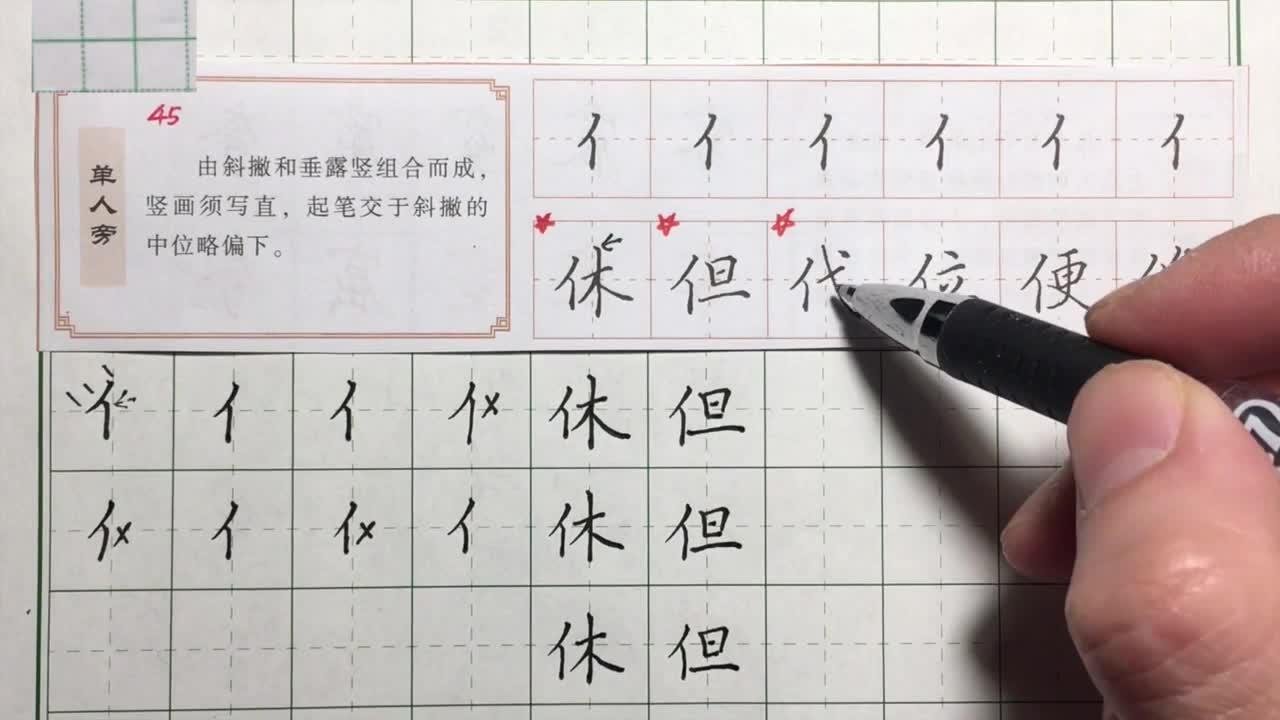 45
单人旁
由斜撇和垂露竖组合而成，
竖画须写直，起笔交于斜撇的
中位略偏下。
亻 亻 亻 亻 亻 亻
休 但 代 位 便
亻 亻 亻 亻× 休 但
亻× 亻 亻× 亻 休 但
休 但